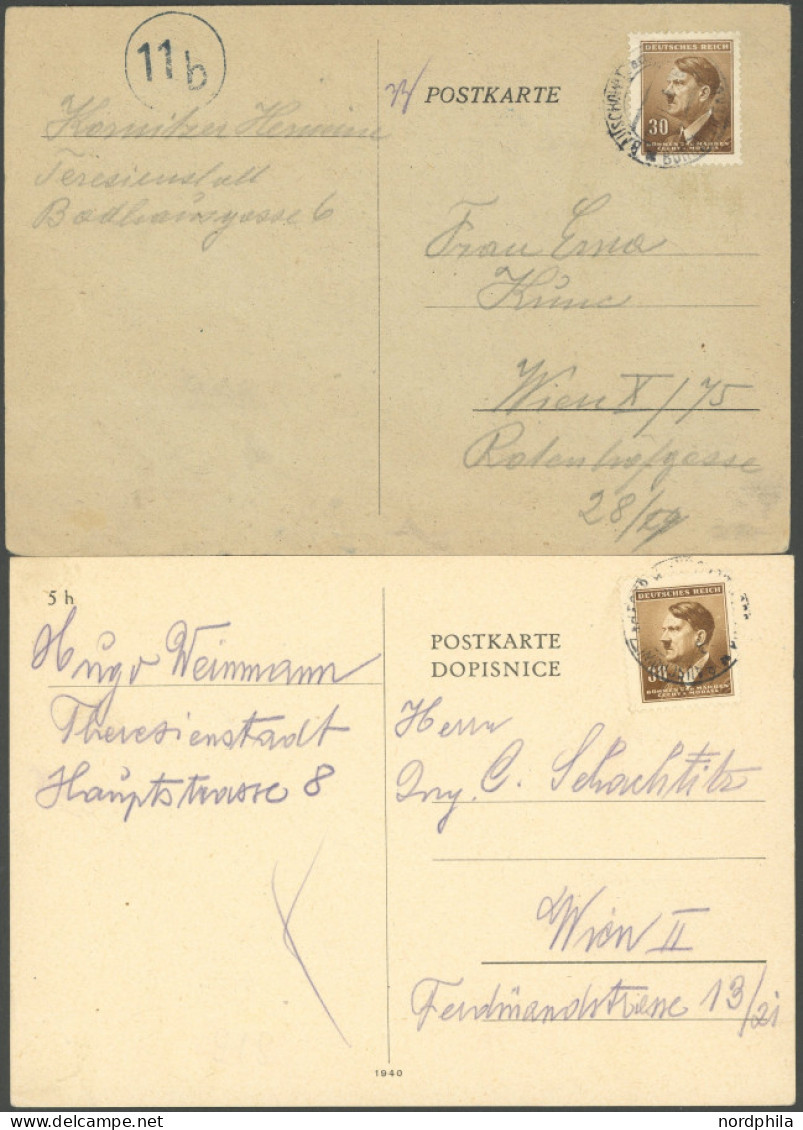 11b
Kornitzer Hermine
Teresienstatt
Badhausgasse 6
POSTKARTE
DEUTSCHES REICH
30
BÖHMEN U. MÄHREN
ČECHY A MORAVA
Frau Erna
Kunc
Wien X/75
Rotenhofgasse
28/
5 h
Hugo Weinmann
Theresienstadt
Hauptstrasse 8
POSTKARTE
DOPISNICE
DEUTSCHES REICH
30
BÖHMEN U. MÄHREN
ČECHY A MORAVA
Herrn
Ing. C. Schachlitz
Wien II
Ferdinandstrasse 13/21
1940
nordphila.com